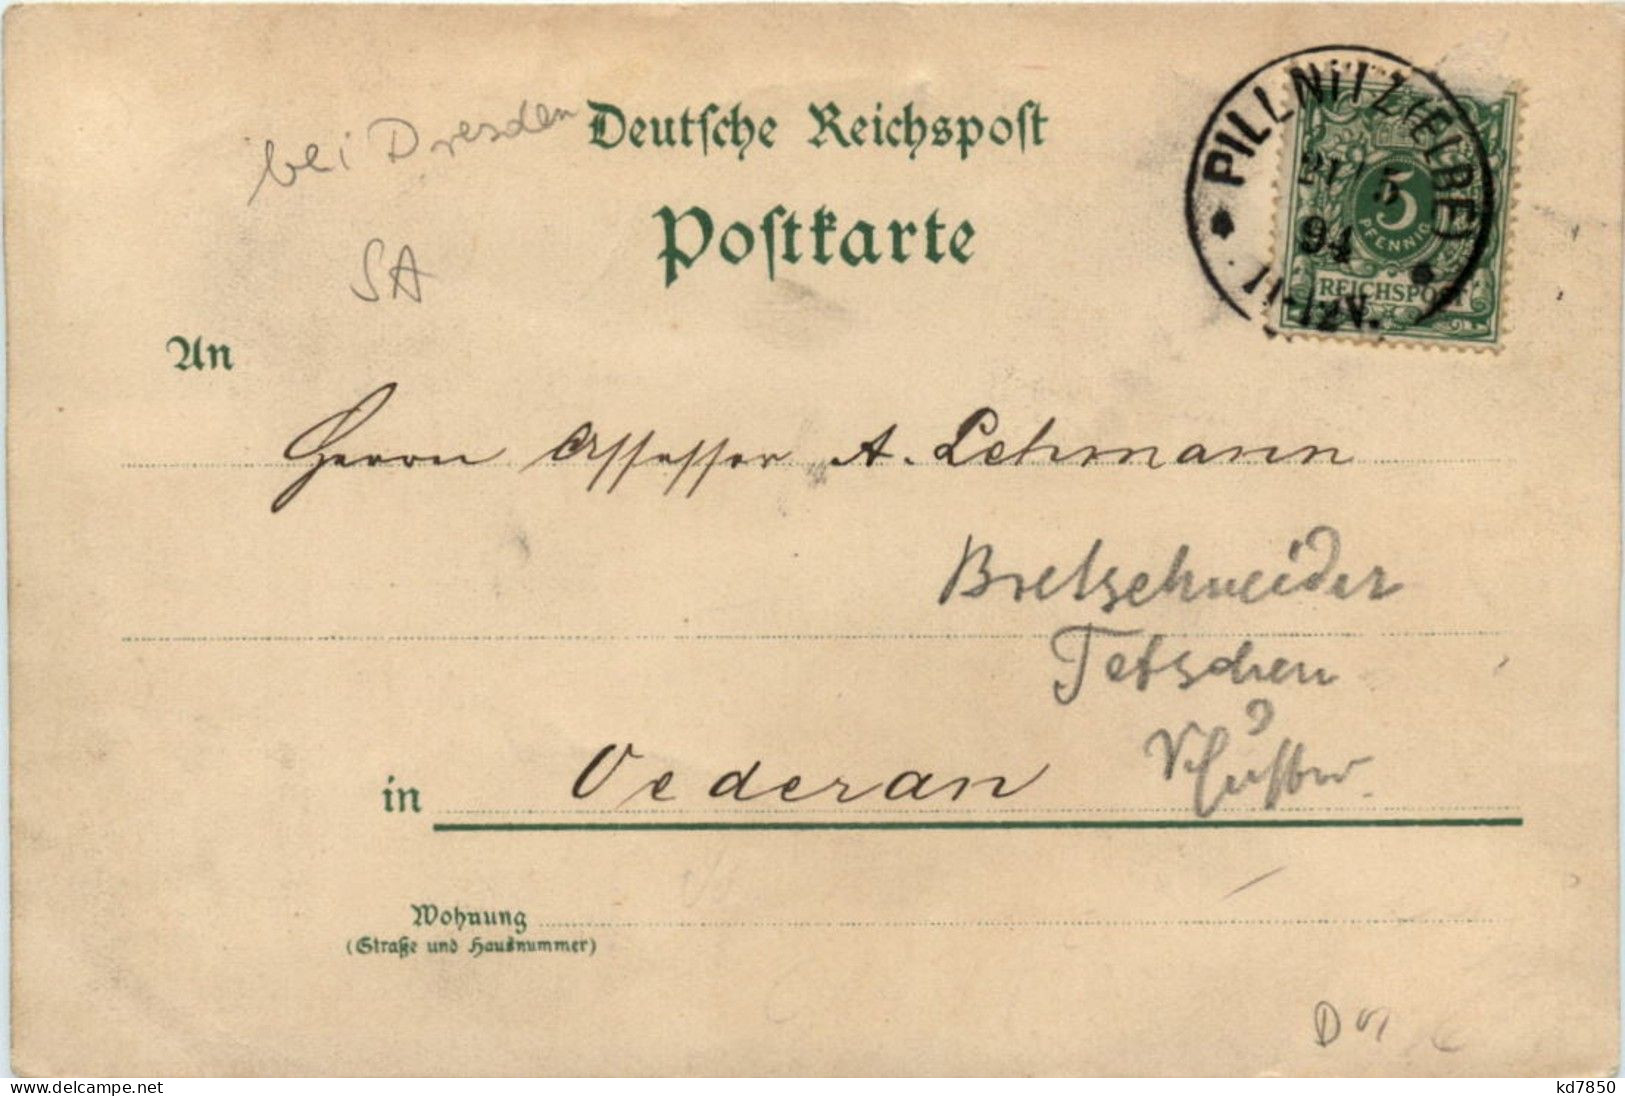 bei Dresden
Deutsche Reichspost
Postkarte
SA
PILLNITZ (ELBE)
21 5
94
11-12V.
5
PFENNIG
REICHSPOST
An
Herrn Assessor A. Lehmann
Bretschneider
Tetschen
in Oederan
Wohnung
(Straße und Hausnummer)
D
kd7850